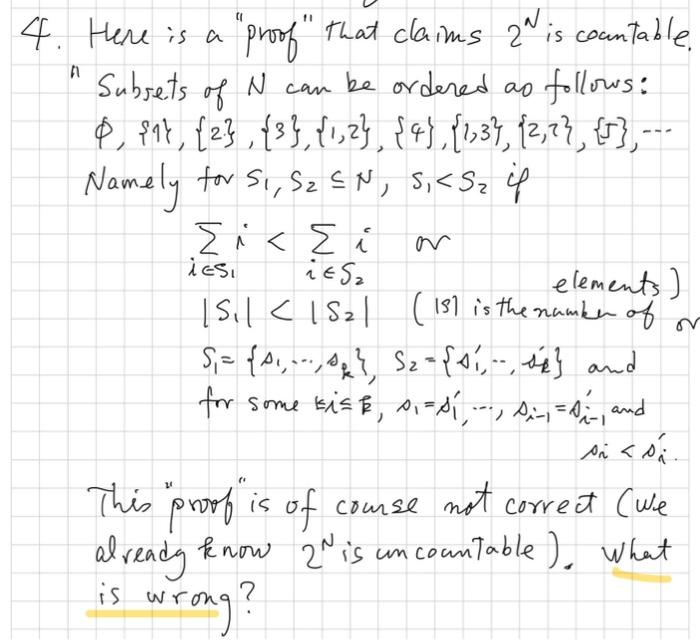 4. Here is a "proof" that claims 2^N is countable.
" Subsets of N can be ordered as follows:
ϕ, {1}, {2}, {3}, {1,2}, {4}, {1,3}, {2,2}, {5}, ---
Namely for S₁, S₂ ⊆ N, S₁ < S₂ if
∑_{i∈S₁} i < ∑_{i∈S₂} i or
|S₁| < |S₂| (|S| is the number of elements) or
S₁ = {s₁, ..., s_k}, S₂ = {s₁', ..., s_k'} and
for some 1≤i≤k, s₁ = s₁', ..., s_{i-1} = s'_{i-1} and
s_i < s_i'.
This "proof" is of course not correct (we
already know 2^N is uncountable). What
is wrong?